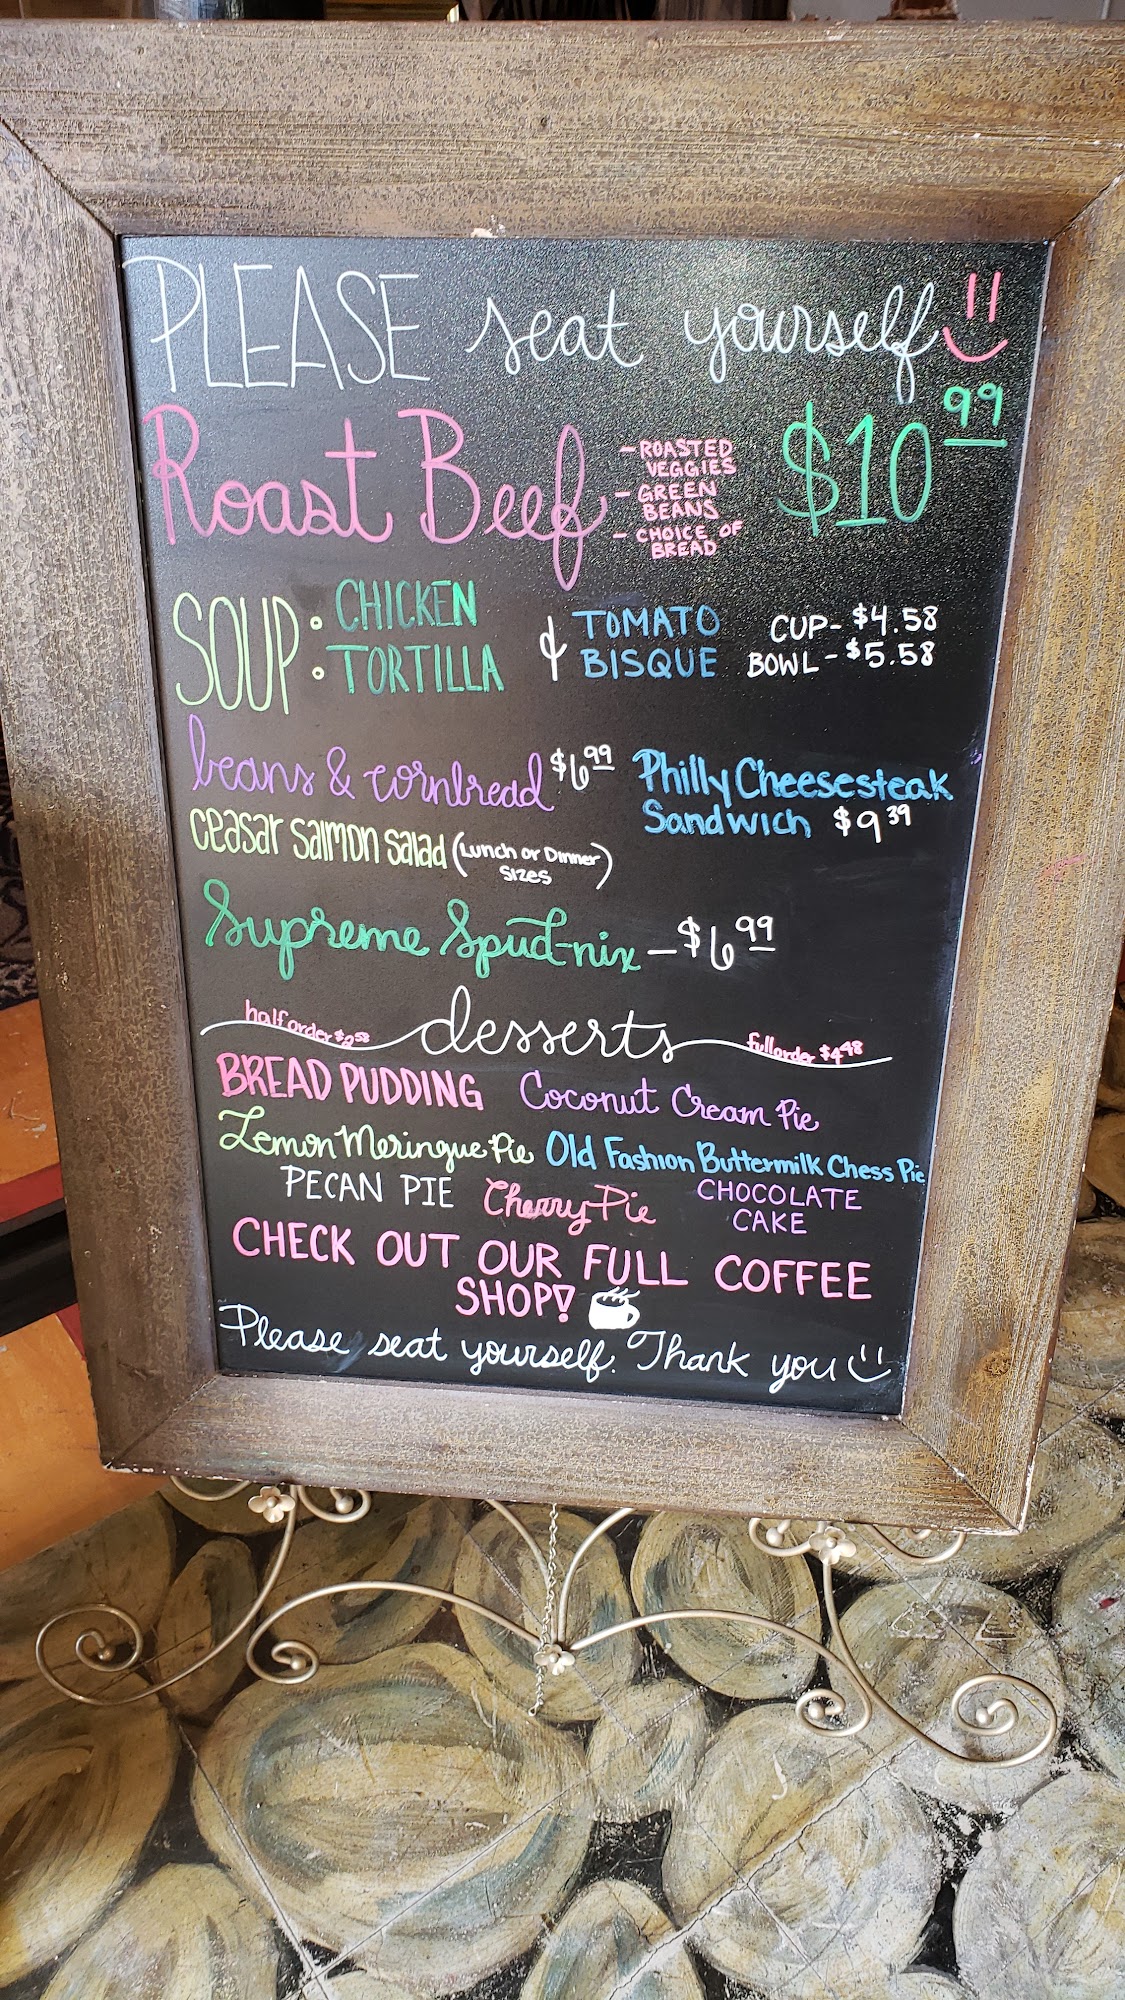 PLEASE seat yourself
Roast Beef
- ROASTED
VEGGIES
- GREEN
BEANS
- CHOICE OF
BREAD
$10 99
SOUP: CHICKEN
TORTILLA
& TOMATO
BISQUE
CUP- $4.58
BOWL- $5.58
beans & cornbread $6 99
Philly Cheesesteak
Sandwich $9 39
Ceasar Salmon Salad (Lunch or Dinner
Sizes)
Supreme Spud-nix - $6 99
half order $2 58 desserts full order $4 48
BREAD PUDDING Coconut Cream Pie
Lemon Meringue Pie Old Fashion Buttermilk Chess Pie
PECAN PIE Cherry Pie CHOCOLATE
CAKE
CHECK OUT OUR FULL COFFEE
SHOP!
Please seat yourself. Thank you